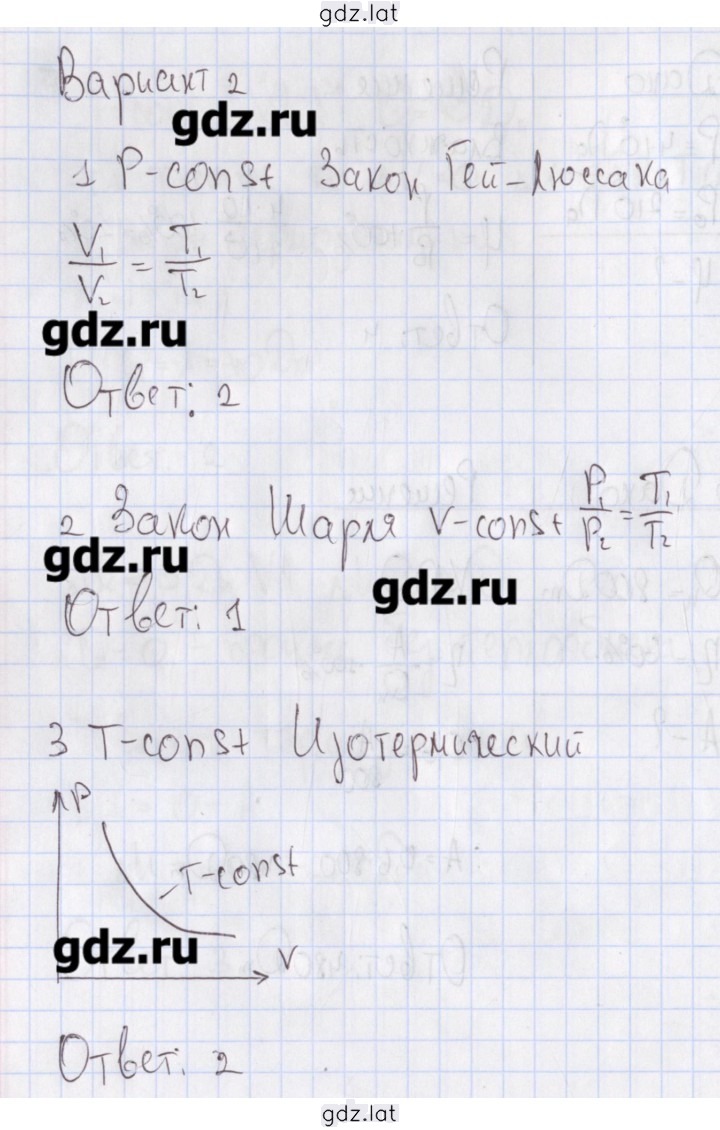 gdz.lat
Вариант 2
gdz.ru
1 P-const Закон Гей-Люссака
V₁/V₂ = T₁/T₂
gdz.ru
Ответ: 2
2 Закон Шарля V-const P₁/P₂ = T₁/T₂
gdz.ru
gdz.ru
Ответ: 1
3 T-const Изотермический
P
T-const
gdz.ru
V
Ответ: 2
gdz.lat